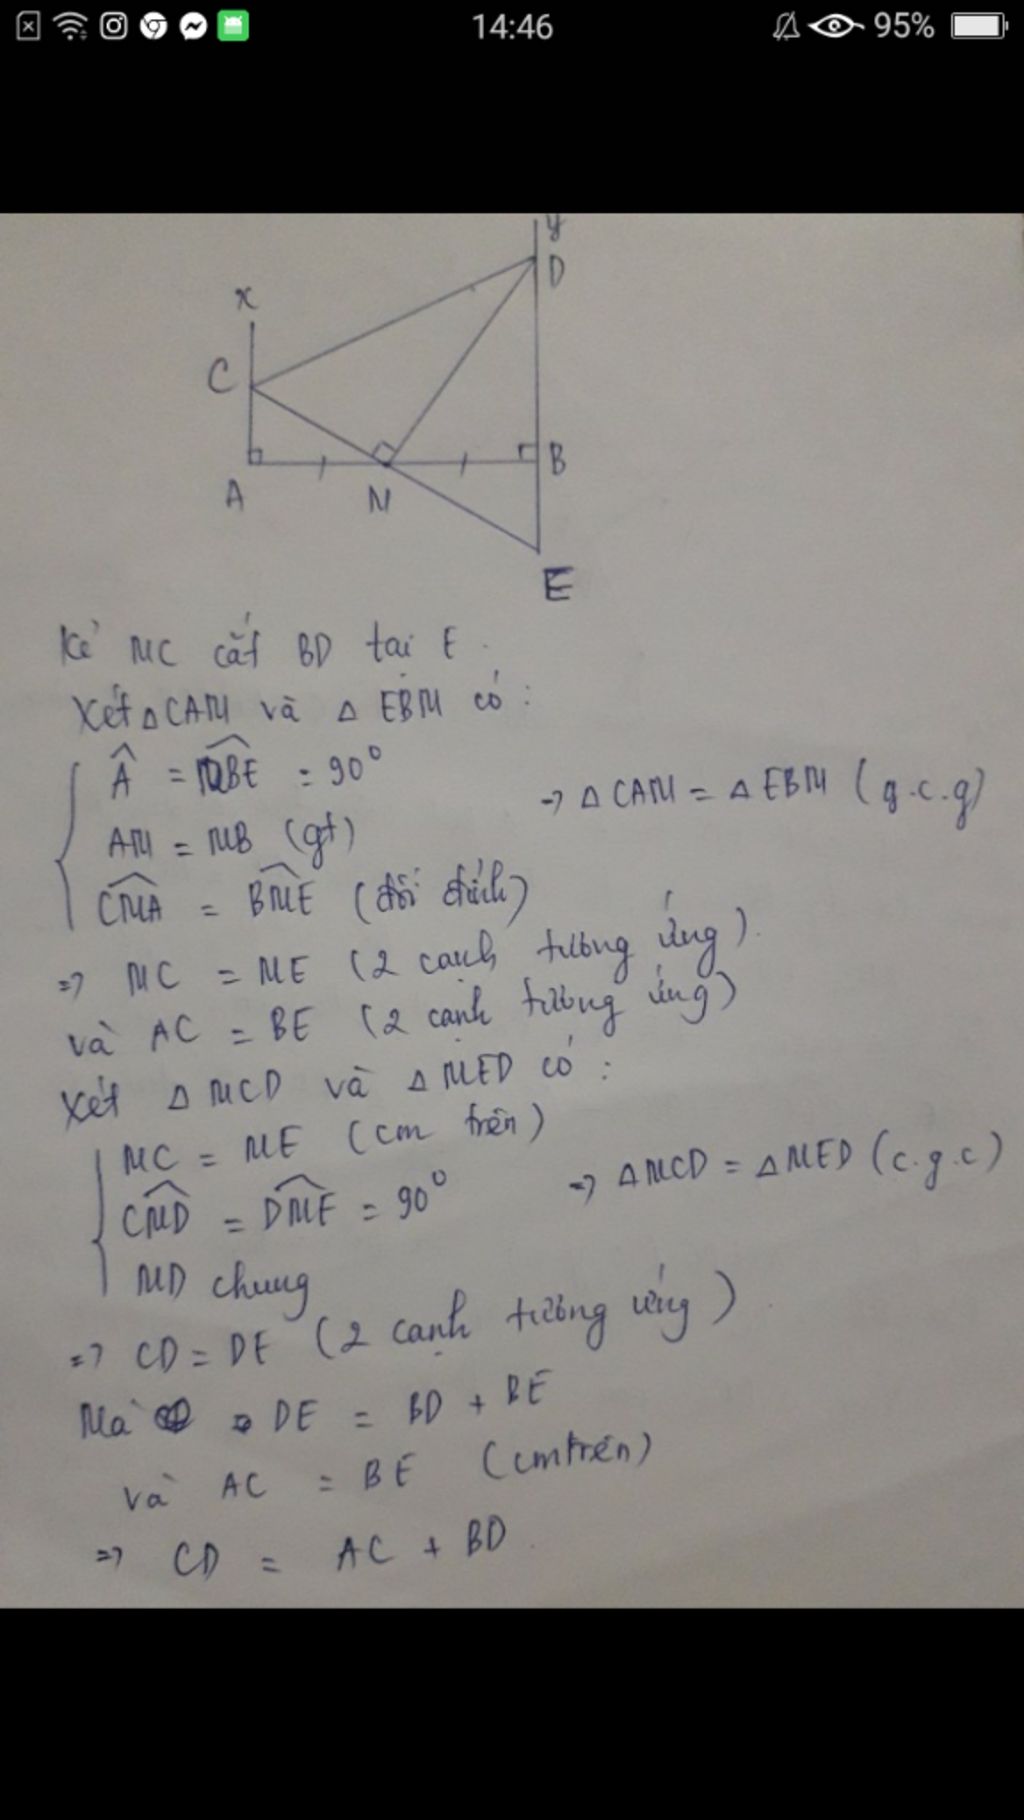 14:46
95%
y
D
x
C
B
A
M
E
Kẻ MC cắt BD tại E.
Xét △CAM và △EBM có:
Â = MBE = 90°
AM = MB (gt)
→ △CAM = △EBM (g.c.g)
CMA = BME (đối đỉnh)
=> MC = ME (2 cạnh tương ứng).
và AC = BE (2 cạnh tương ứng)
Xét △MCD và △MED có:
MC = ME (cm trên)
CMD = DME = 90°
=> △MCD = △MED (c.g.c)
MD chung
=> CD = DE (2 cạnh tương ứng).
Mà DE = BD + BE
và AC = BE (cm trên)
=> CD = AC + BD.